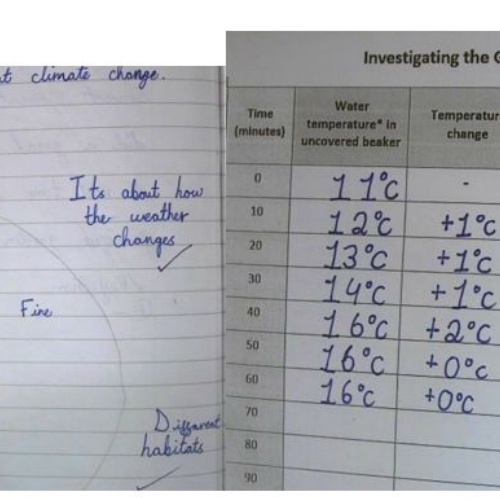 t climate change.
Its about how
the weather
changes
Fine
Different
habitats
Investigating the G
Time
(minutes)
Water
temperature* in
uncovered beaker
Temperatur
change
0 11°c -
10 12°c +1°c
20 13°c +1°c
30 14°c +1°c
40 16°c +2°c
50 16°c +0°c
60 16°c +0°c
70
80
90